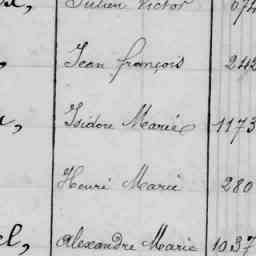 Julien Victor 674
Jean françois 242
Isidore Marie 1173
Henri Marie 280
el, Alexandre Marie 1037